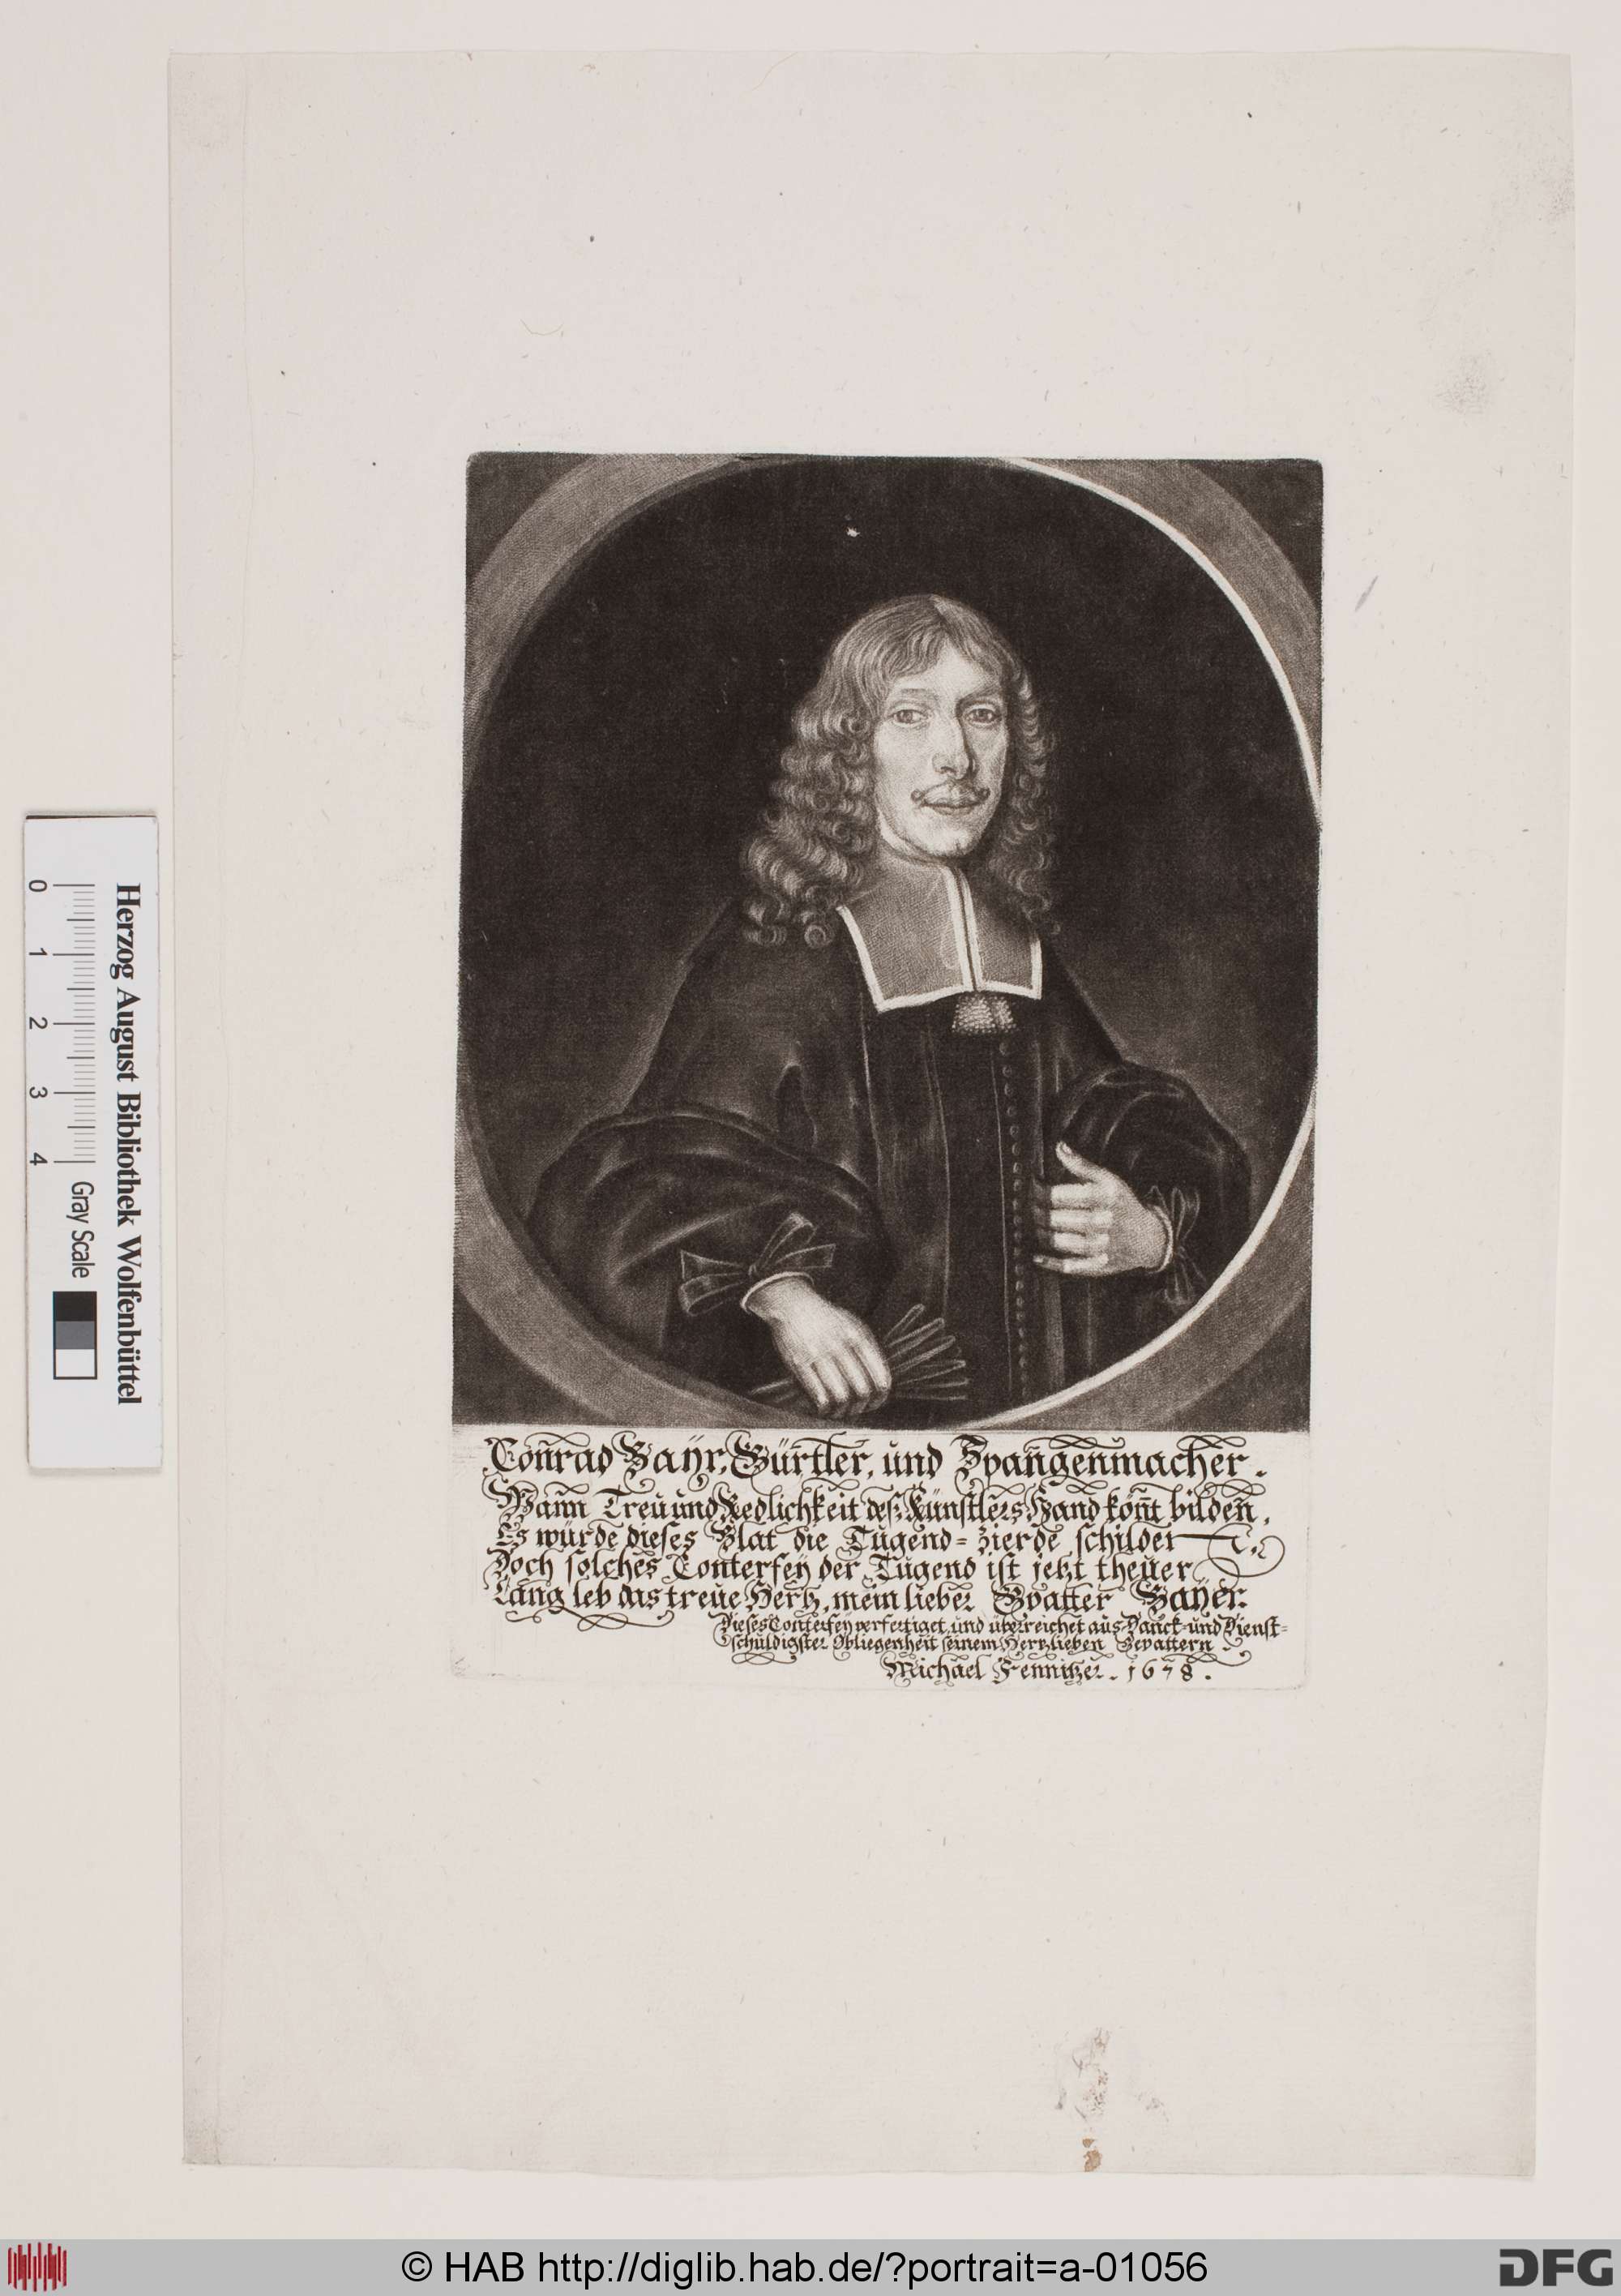 Conrad Bayr, Gürtler, und Spangenmacher.
Wann Treu und Redlichkeit deß Künstlers Hand kön̄t bilden,
Es würde dieses Blat die Tugend-zierde schildern
Doch solches Conterfeÿ der Tugend ist jetzt theuer
Lang leb das treue Hertz, mein lieber Gvatter Baÿer.
Dieses Conterfeÿ verfertiget, und überreichet aus Danck- und Dienst-
schuldigster Obliegenheit seinem Hertzlieben Gevattern
Michael Fennitzer. 1678.
Herzog August Bibliothek Wolfenbüttel
0 1 2 3 4 Gray Scale
© HAB http://diglib.hab.de/?portrait=a-01056
DFG